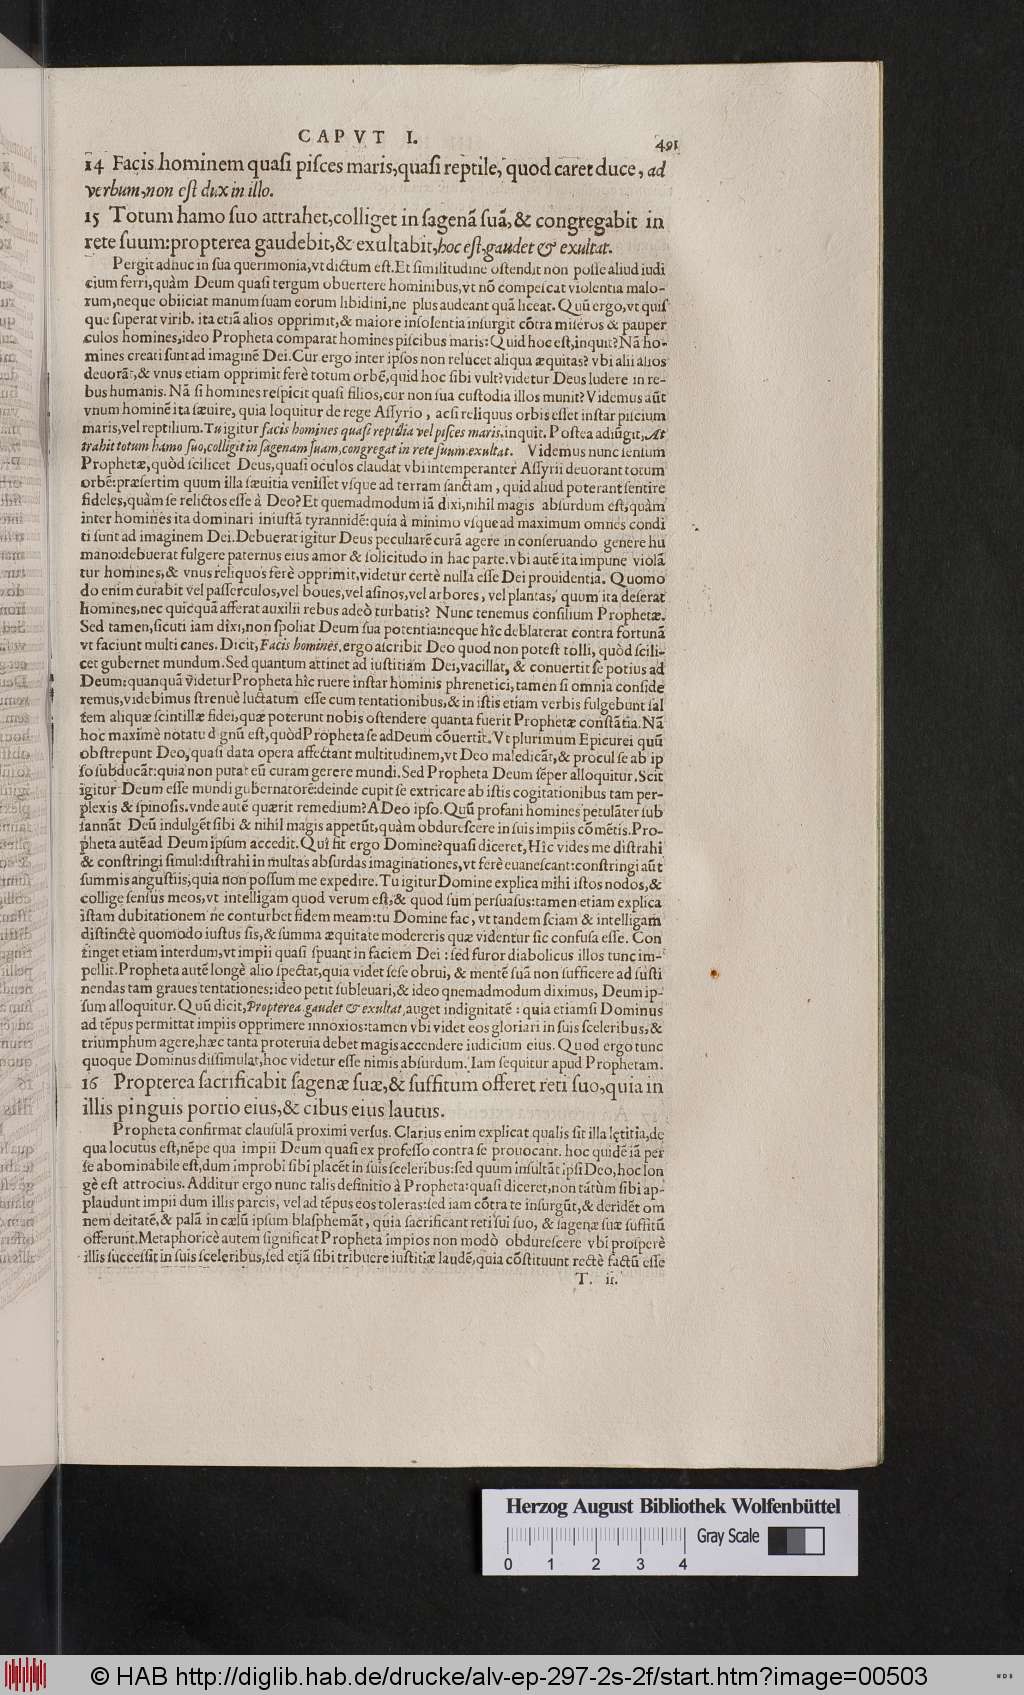 CAPVT I.
491
14 Facis hominem quasi pisces maris, quasi reptile, quod caret duce, ad
verbum, non est dux in illo.
15 Totum hamo suo attrahet, colliget in sagenã suã, & congregabit in
rete suum: propterea gaudebit, & exultabit, hoc est, gaudet & exultat.
Pergit adhuc in sua querimonia, vt dictum est. Et similitudine ostendit non posse aliud iudi
cium ferri, quàm Deum quasi tergum obuertere hominibus, vt nõ compescat violentia malo-
rum, neque obiiciat manum suam eorum libidini, ne plus audeant quã liceat. Quũ ergo, vt quis
que superat virib. ita etiã alios opprimit, & maiore insolentia insurgit cõtra miseros & pauper
culos homines, ideo Propheta comparat homines piscibus maris: Quid hoc est, inquit? Nã ho-
mines creati sunt ad imaginẽ Dei. Cur ergo inter ipsos non relucet aliqua æquitas? vbi alii alios
deuorãt, & vnus etiam opprimit ferè totum orbẽ, quid hoc sibi vult? videtur Deus ludere in re-
bus humanis. Nã si homines respicit quasi filios, cur non sua custodia illos munit? Videmus aũt
vnum hominẽ ita sæuire, quia loquitur de rege Assyrio, acsi reliquus orbis esset instar piscium
maris, vel reptilium. Tu igitur facis homines quasi reptilia vel pisces maris, inquit. Postea adiũgit, At
trahit totum hamo suo, colligit in sagenam suam, congregat in rete suum: exultat. Videmus nunc sensum
Prophetæ, quòd scilicet Deus, quasi oculos claudat vbi intemperanter Assyrii deuorant totum
orbẽ: præsertim quum illa sæuitia venisset vsque ad terram sanctam, quid aliud poterant sentire
fideles, quàm se relictos esse à Deo? Et quemadmodum iã dixi, nihil magis absurdum est, quàm
inter homines ita dominari iniustã tyrannidẽ: quia à minimo vsque ad maximum omnes condi
ti sunt ad imaginem Dei. Debuerat igitur Deus peculiarẽ curã agere in conseruando genere hu
mano: debuerat fulgere paternus eius amor & solicitudo in hac parte. vbi autẽ ita impune violã
tur homines, & vnus reliquos ferè opprimit, videtur certè nulla esse Dei prouidentia. Quomo
do enim curabit vel passerculos, vel boues, vel asinos, vel arbores, vel plantas, quum ita deserat
homines, nec quicquã afferat auxilii rebus adeò turbatis? Nunc tenemus consilium Prophetæ.
Sed tamen, sicuti iam dixi, non spoliat Deum sua potentia: neque hîc deblaterat contra fortunã
vt faciunt multi canes. Dicit, Facis homines. ergo ascribit Deo quod non potest tolli, quòd scili-
cet gubernet mundum. Sed quantum attinet ad iustitiam Dei, vacillat, & conuertit se potius ad
Deum: quanquã videtur Propheta hîc ruere instar hominis phrenetici, tamen si omnia conside
remus, videbimus strenuè luctatum esse cum tentationibus, & in istis etiam verbis fulgebunt sal
tem aliquæ scintillæ fidei, quæ poterunt nobis ostendere quanta fuerit Prophetæ constãtia. Nã
hoc maximè notatu dignũ est, quòd Propheta se ad Deum cõuertit. Vt plurimum Epicurei quũ
obstrepunt Deo, quasi data opera affectant multitudinem, vt Deo maledicãt, & procul se ab ip
so subducãt: quia non putãt eũ curam gerere mundi. Sed Propheta Deum sẽper alloquitur. Scit
igitur Deum esse mundi gubernatorẽ: deinde cupit se extricare ab istis cogitationibus tam per-
plexis & spinosis. vnde autẽ quærit remedium? A Deo ipso. Quũ profani homines petulãter sub
sannãt Deũ indulgẽt sibi & nihil magis appetũt, quàm obdurescere in suis impiis cõmẽtis. Pro-
pheta autẽ ad Deum ipsum accedit. Qui fit ergo Domine? quasi diceret, Hîc vides me distrahi
& constringi simul: distrahi in multas absurdas imaginationes, vt ferè euanescant: constringi aũt
summis angustiis, quia non possum me expedire. Tu igitur Domine explica mihi istos nodos, &
collige sensus meos, vt intelligam quod verum est, & quod sum persuasus: tamen etiam explica
istam dubitationem ne conturbet fidem meam: tu Domine fac, vt tandem sciam & intelligam
distinctè quomodo iustus sis, & summa æquitate modereris quæ videntur sic confusa esse. Con
tinget etiam interdum, vt impii quasi spuant in faciem Dei: sed furor diabolicus illos tunc im-
pellit. Propheta autẽ longè alio spectat, quia videt sese obrui, & mentẽ suã non sufficere ad susti
nendas tam graues tentationes: ideo petit subleuari, & ideo qnemadmodum diximus, Deum ip-
sum alloquitur. Quũ dicit, Propterea gaudet & exultat, auget indignitatẽ: quia etiamsi Dominus
ad tẽpus permittat impiis opprimere innoxios: tamen vbi videt eos gloriari in suis sceleribus, &
triumphum agere, hæc tanta proteruia debet magis accendere iudicium eius. Quod ergo tunc
quoque Dominus dissimulat, hoc videtur esse nimis absurdum. Iam sequitur apud Prophetam.
16 Propterea sacrificabit sagenæ suæ, & suffitum offeret reti suo, quia in
illis pinguis portio eius, & cibus eius lautus.
Propheta confirmat clausulã proximi versus. Clarius enim explicat qualis sit illa lętitia, de
qua locutus est, nẽpe qua impii Deum quasi ex professo contra se prouocant. hoc quidẽ iã per
se abominabile est, dum improbi sibi placẽt in suis sceleribus: sed quum insultãt ipsi Deo, hoc lon
gè est attrocius. Additur ergo nunc talis definitio à Propheta: quasi diceret, non tãtùm sibi ap-
plaudunt impii dum illis parcis, vel ad tẽpus eos toleras: sed iam cõtra te insurgũt, & deridẽt om
nem deitatẽ, & palã in cælũ ipsum blasphemãt, quia sacrificant reti sui suo, & sagenæ suæ suffitũ
offerunt. Metaphoricè autem significat Propheta impios non modò obdurescere vbi prosperè
illis successit in suis sceleribus, sed etiã sibi tribuere iustitiæ laudẽ, quia cõstituunt rectè factũ esse
T. ii.
Herzog August Bibliothek Wolfenbüttel
Gray Scale
0 1 2 3 4
© HAB http://diglib.hab.de/drucke/alv-ep-297-2s-2f/start.htm?image=00503